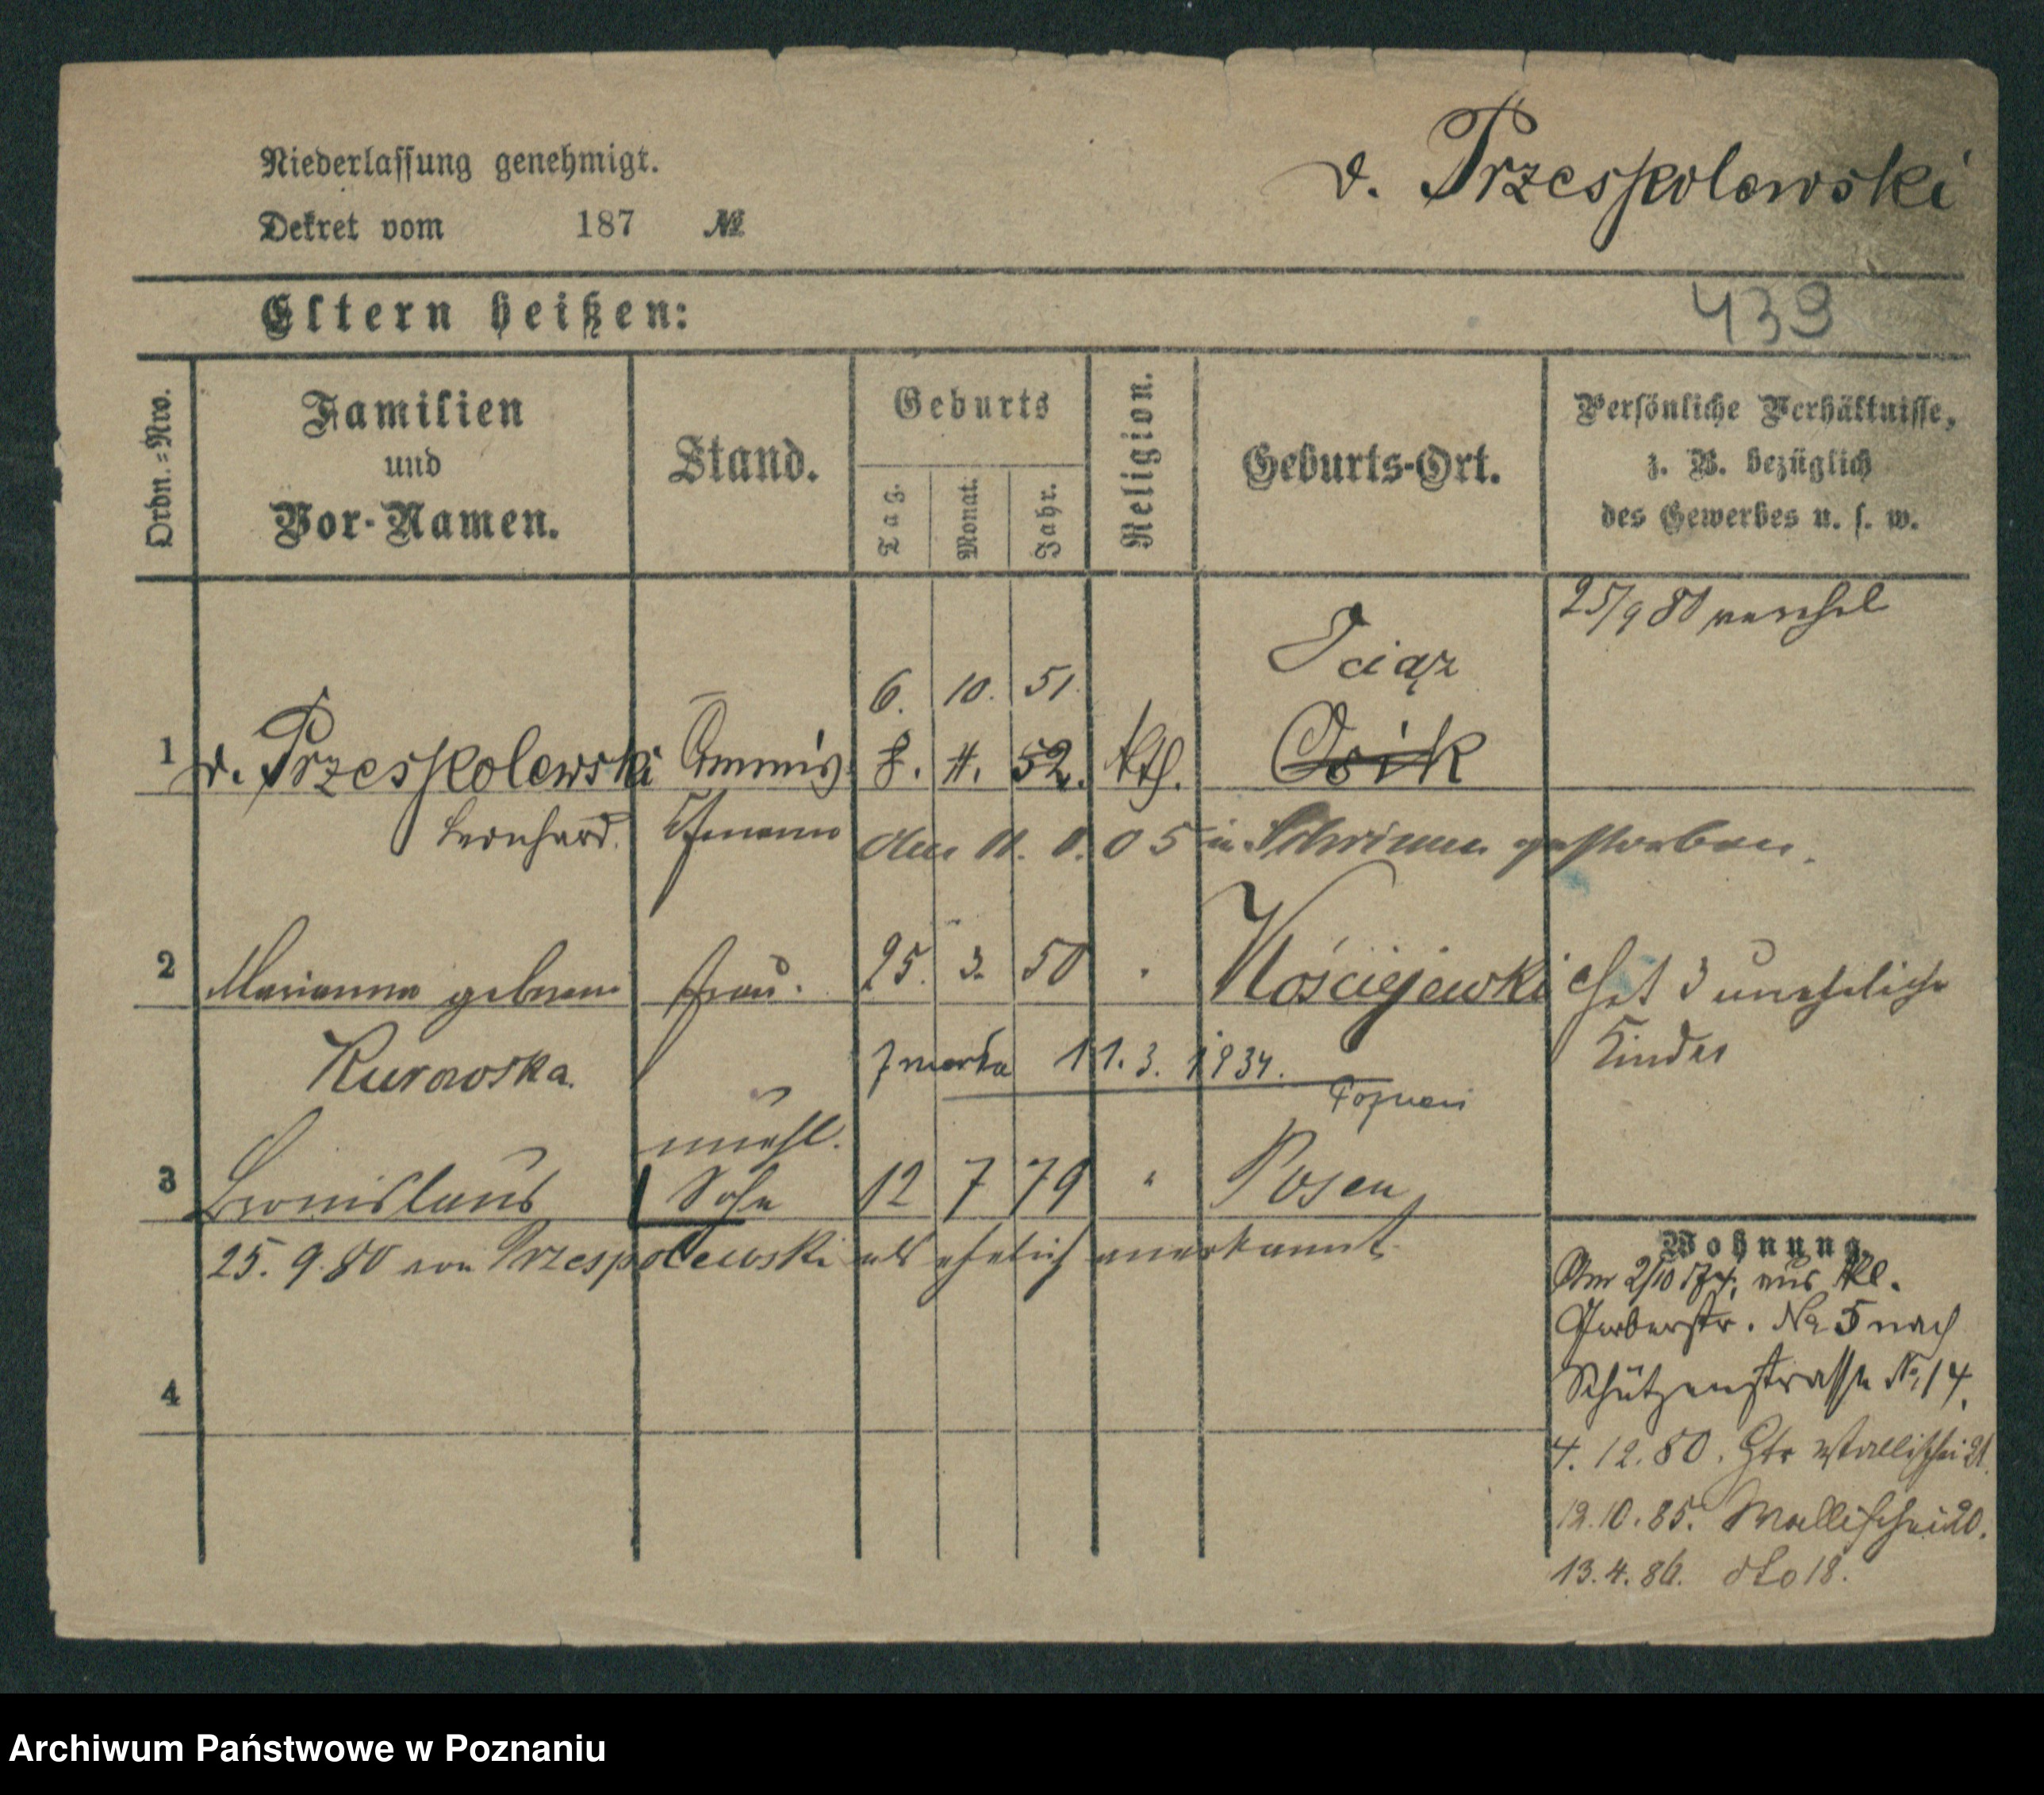 Niederlassung genehmigt.
v. Przespolewski
Dekret vom 187 №
Eltern heißen:
439
Ordn.=Nro.
Familien
und
Vor-Namen.
Stand.
Geburts
Tag.
Monat.
Jahr.
Religion.
Geburts-Ort.
Persönliche Verhältnisse,
z. B. bezüglich
des Gewerbes u. s. w.
25/9 80
Ociąż
6. 10. 51.
1 v. Przespolewski Commis 8. 4. 52. kth. Osik
Leonhard. Ehemann den 11. 0. 05 in Schrimm gestorben.
2 Marianna geborene Frau. 25. 3. 50 " Kościejewki Hat 3 uneheliche
Kurowska. Zmarła 11. 3. 1934. Kinder
Poznań
unehl.
3 Bronislaus Sohn 12 7 79 " Posen
25. 9. 80 von Przespolewski als ehelich anerkannt.
Wohnung.
Am 2/10 aus Kl.
Gerberstr. No 5 nach
Schützenstrasse No 14.
4
4. 12. 80. Wallischei 21.
12. 10. 85. Wallischei 20.
13. 4. 86. dto 18.
Archiwum Państwowe w Poznaniu